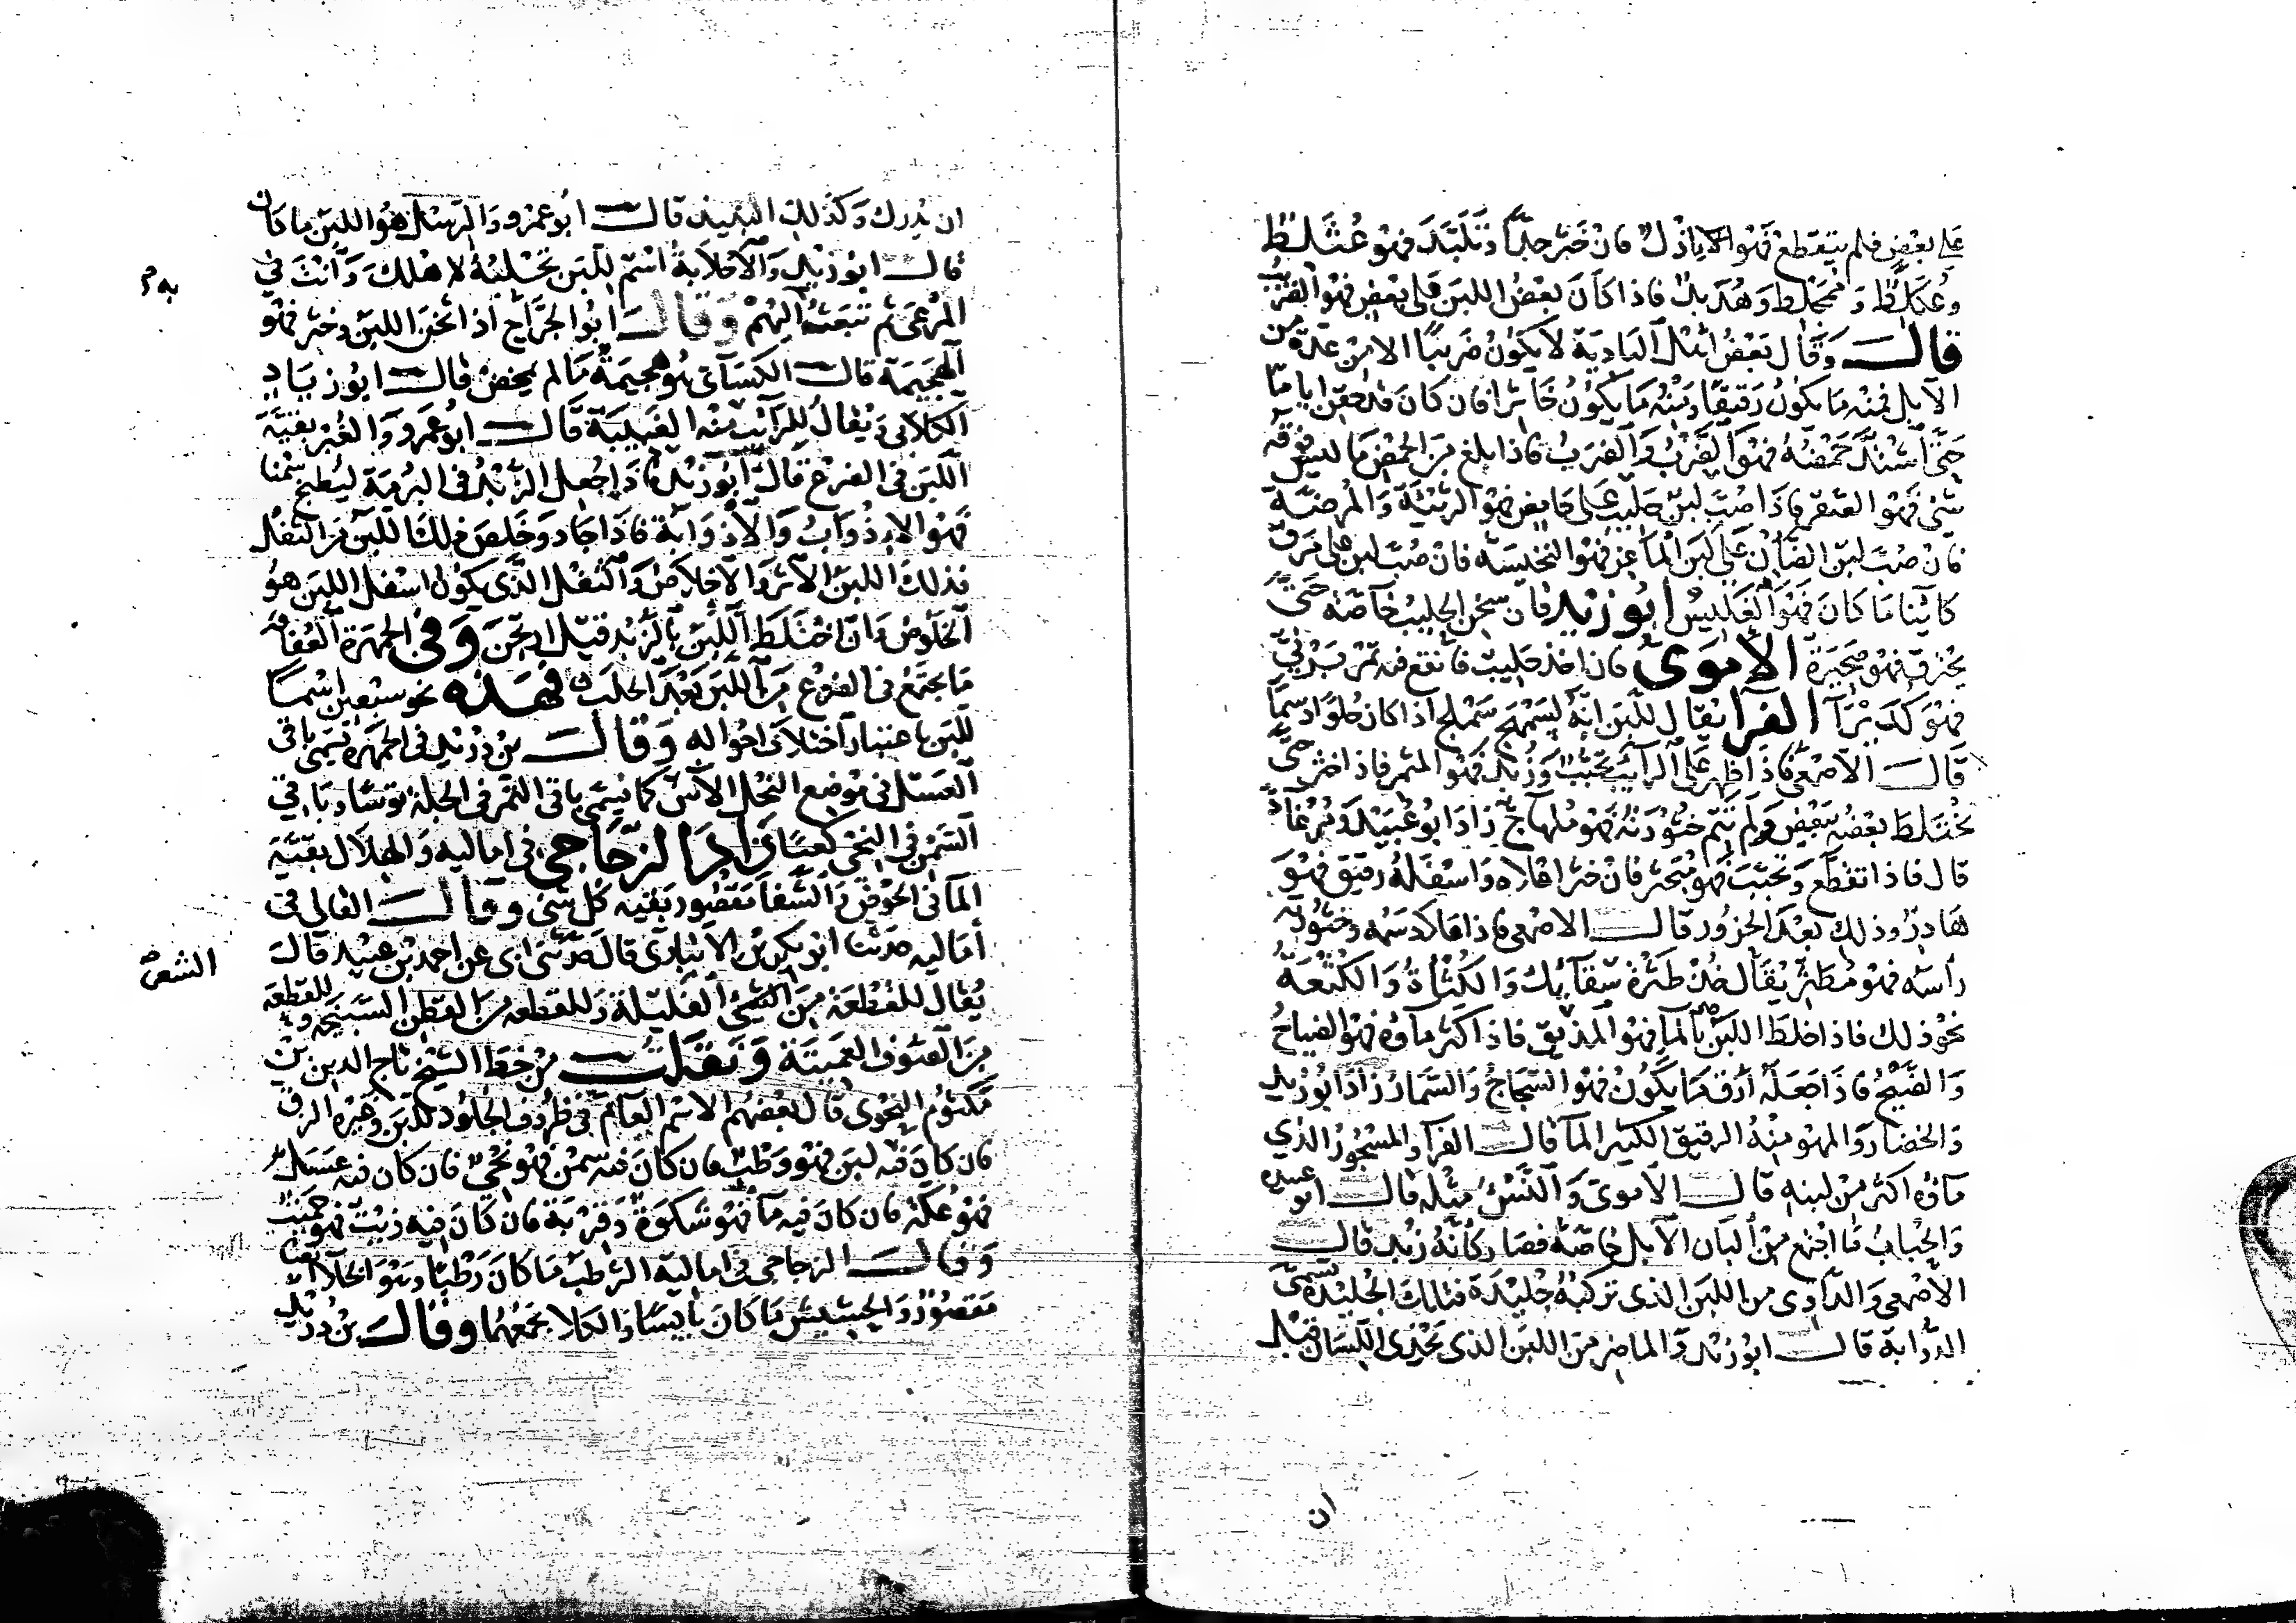 على بعض فلم يتقطع فهو الاباذل فان خثر جدا وتلبد فهو عثلط
وعكلط وعجلط وهدبد فاذا كان بعض اللبن على بعض فهو الضريب
قال وقال بعض اهل البادية لا يكون ضريبا الا من عدة من
الابل فمنه ما يكون رقيقا ومنه ما يكون خاثرا فان كان قد حقن اياما
حتى اشتد حمضه فهو الصرب والصرب فاذا بلغ من الحمض ما ليس فوقه
شئ فهو الصقر فاذا صب لبن حليب على حامض فهو الرثيئة والمرضة
فان صب لبن الضان على لبن الماعز فهو النخيسة فان صب لبن على مرق
كائنا ما كان فهو الغليس ابو زيد فان سخن الحليب خاصة حتى
يحترق فهو صحيرة الاموى فان اخذ حليب فانقع فيه تمر برني
فهو كديراء الفرا يقال للبن انه لسمهج سملج اذا كان حلوا دسما
قال الاصمعى فاذا ظهر على الرائب تحبب وزبد فهو المثمر فاذا خثر حتى
يختلط بعضه ببعض ولم تتم خثورته فهو ملهاج زاد ابو عبيد ومرغاد
قال فاذا تقطع وتحبب فهو مبحثر فان خثر اعلاه واسفله رقيق فهو
هادر وذلك بعد الحزور قال الاصمعى فاذا علا دسمه وخثورته
راسه فهو مطثر يقال خذ طثرة سقائك والكثاة والكثعة
نحو ذلك فاذا خلط اللبن بالما فهو المذيق فاذا كثر ماوه فهو الضياح
والضيح فاذا جعله ارق ما يكون فهو السجاج والسمار زاد ابو زيد
والخضار والمهو منه الرقيق الكثير الما قال الفرا والمسجور الذي
ماوه اكثر من لبنه قال الاموى والنس مثله قال ابو عبيدة
والجباب ما اجتمع من البان الابل خاصة فصار كانه زبد قال
الاصمعى والداوى من اللبن الذى تركبه جليدة فتلك الجليدة تسمى
الدواية قال ابو زيد والماضر من اللبن الذى يحذى اللسان قبل
ان
ان يدرك وكذلك النبيذ قال ابو عمرو والرسل هو اللبن ما كان
قال ابو زيد والاحلابة اسم للبن تحلبه لاهلك وانت في
المرعى ثم تبعث اليهم وقال ابو الجراح اذا ثخن اللبن وخثر فهو
به م
الهجيمة قال الكسائى هو هجيمة ما لم يمخض قال ابو زياد
الكلابى ويقال للرائب منه الغبيبة قال ابو عمرو والغبر بقية
اللبن فى الضرع قال ابو زيد واذا جعل الزبد فى البرمة ليطبخ سمنا
فهو الاذواب والاذوابة فاذا جاد وخلص ذلك اللبن من الثفل
فذلك اللبن الاثر والاخلاص والثفل الذى يكون اسفل اللبن هو
الخلوص وان اختلط اللبن بالزبد قيل ارتجن وفى الجمهرة العفافة
ما يجتمع فى الضرع من اللبن بعد الحلب فهذه نحو سبعين اسما
للبن باعتبار اختلاف احواله وقال بن دريد فى الجمهرة تسمى باقى
العسل فى موضع النحل الاس كما تسمى باقى التمر فى الجلة قوسا وباقي
السمن فى النحى كعبا زاد الزجاجي فى اماليه والهلال بقية
الما فى الحوض والشفا مقصور بقية كل شئ وقال القالى فى
اماليه حدثنا ابو بكر بن الانبارى قال حدثنى ابى عن احمد بن عبيد قال
الشعر صح
يقال للقطعة من الشئ الفليلة وللقطعه من القطن السبيخة وللقطعة
من الصوف العميتة ونقلت من خط الشيخ تاج الدين بن
مكتوم النحوى قال بعضهم الاسم العام فى ظروف الجلود للبن وغيره الزق
فان كان فيه لبن فهو وطب فان كان فيه سمن فهو نحى فان كان فيه عسل
فهو عكة فان كان فيه ما فهو شكوة وقربة فان كان فيه زيت فهو حميت
وقال الزجاجى فى اماليه الرطب ما كان رطبا وهو الخلا ايضا
مقصور والحشيش ما كان يابسا والكلا يجمعهما وقال بن دريد